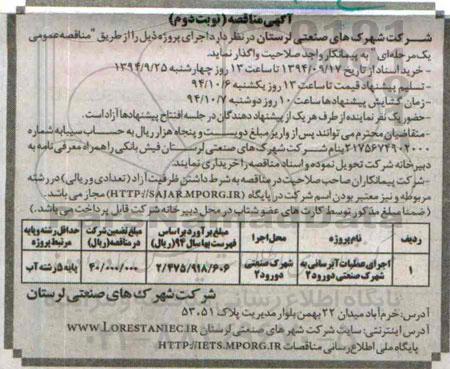 آگهی مناقصه (نوبت دوم)
شرکت شهرک های صنعتی لرستان در نظر دارد اجرای پروژه ذیل را از طریق "مناقصه عمومی
یک مرحله ای" به پیمانکار واجد صلاحیت واگذار نماید.
- خرید اسناد از تاریخ ۱۳۹۴/۰۹/۱۷ تا ساعت ۱۳ روز چهارشنبه ۱۳۹۴/۹/۲۵
- تسلیم پیشنهاد قیمت تا ساعت ۱۳ روز یکشنبه ۹۴/۱۰/۶
- زمان گشایش پیشنهادها ساعت ۱۰ روز دوشنبه ۹۴/۱۰/۷
- حضور یک نفر نماینده از طرف هر یک از پیشنهاد دهندگان در جلسه افتتاح پیشنهادها آزاد است.
- متقاضیان محترم می توانند پس از واریز مبلغ دویست و پنجاه هزار ریال به حساب سیبا به شماره
۲۱۷۵۶۷۴۹۰۲۰۰۰ بنام شرکت شهرک های صنعتی لرستان فیش بانکی را همراه معرفی نامه به
دبیرخانه شرکت تحویل نموده و اسناد مناقصه را خریداری نمایند.
- شرکت پیمانکاران صاحب صلاحیت در مناقصه به شرط داشتن ظرفیت آزاد (تعدادی و ریالی) در رشته
مربوطه و نیز معتبر بودن اسم شرکت در پایگاه (HTTP://SAJAR.MPORG.IR) مجاز می باشد.
( ضمنا مبلغ مذکور توسط کارت های عضو شتاب در محل دبیرخانه شرکت قابل پرداخت می باشد.)
ردیف نام پروژه محل اجرا مبلغ برآورد براساس فهرست بها سال ۹۴ (ریال) مبلغ تضمین شرکت در مناقصه (ریال) حداقل رشته و پایه مرتبط پروژه
۱ اجرای عملیات آبرسانی به شهرک صنعتی دورود ۲ شهرک صنعتی دورود ۲ ۲/۴۷۵/۹۱۸/۶۰۶ ۴۰/۰۰۰/۰۰۰ پایه ۵ رشته آب
شرکت شهرک های صنعتی لرستان
آدرس: خرم آباد میدان ۲۲ بهمن بلوار مدیریت پلاک ۵۳۰۵۱
آدرس اینترنتی: سایت شرکت شهرک های صنعتی لرستان WWW.LORESTANIEC.IR
پایگاه ملی اطلاع رسانی مناقصات HTTP://IETS.MPORG.IR